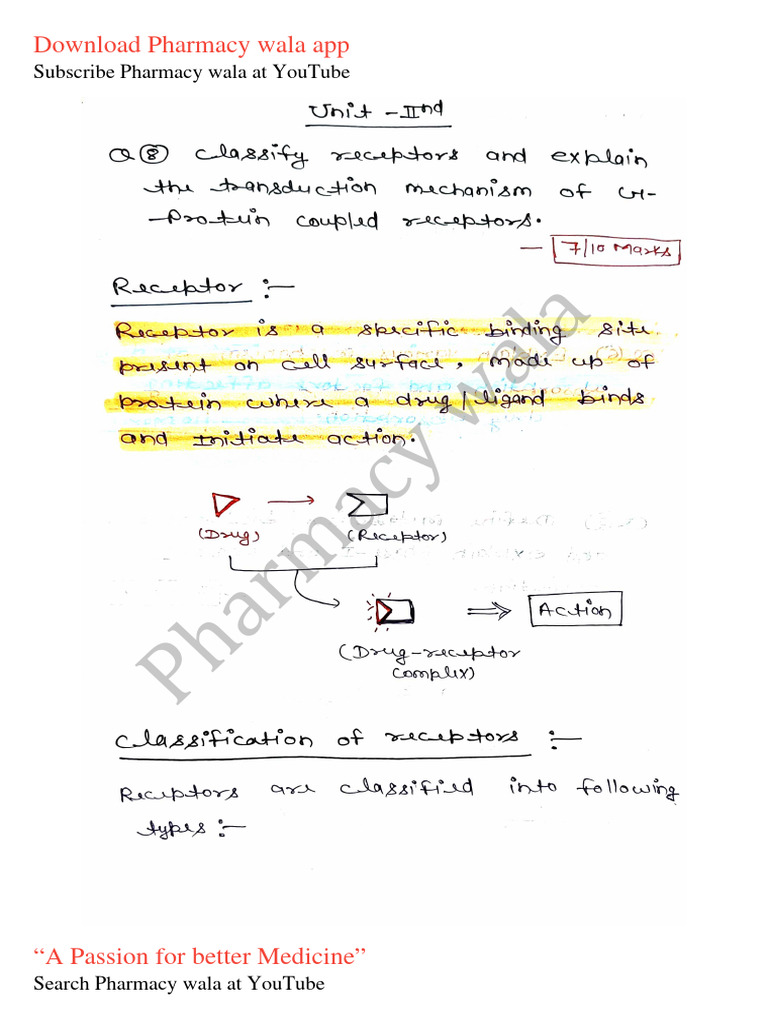 Download Pharmacy wala app
Subscribe Pharmacy wala at YouTube
Unit - IInd
Q ⑧ Classify receptors and explain
the transduction mechanism of G-
Protein coupled receptors.
— 7/10 Marks
Receptor :-
Receptor is a specific binding site
present on cell surface, made up of
protein where a drug/ligand binds
and Initiate action.
(Drug) (Receptor)
Action
(Drug-receptor
complex)
Classification of receptors :-
Receptors are classified into following
types :-
Pharmacy wala
“A Passion for better Medicine”
Search Pharmacy wala at YouTube